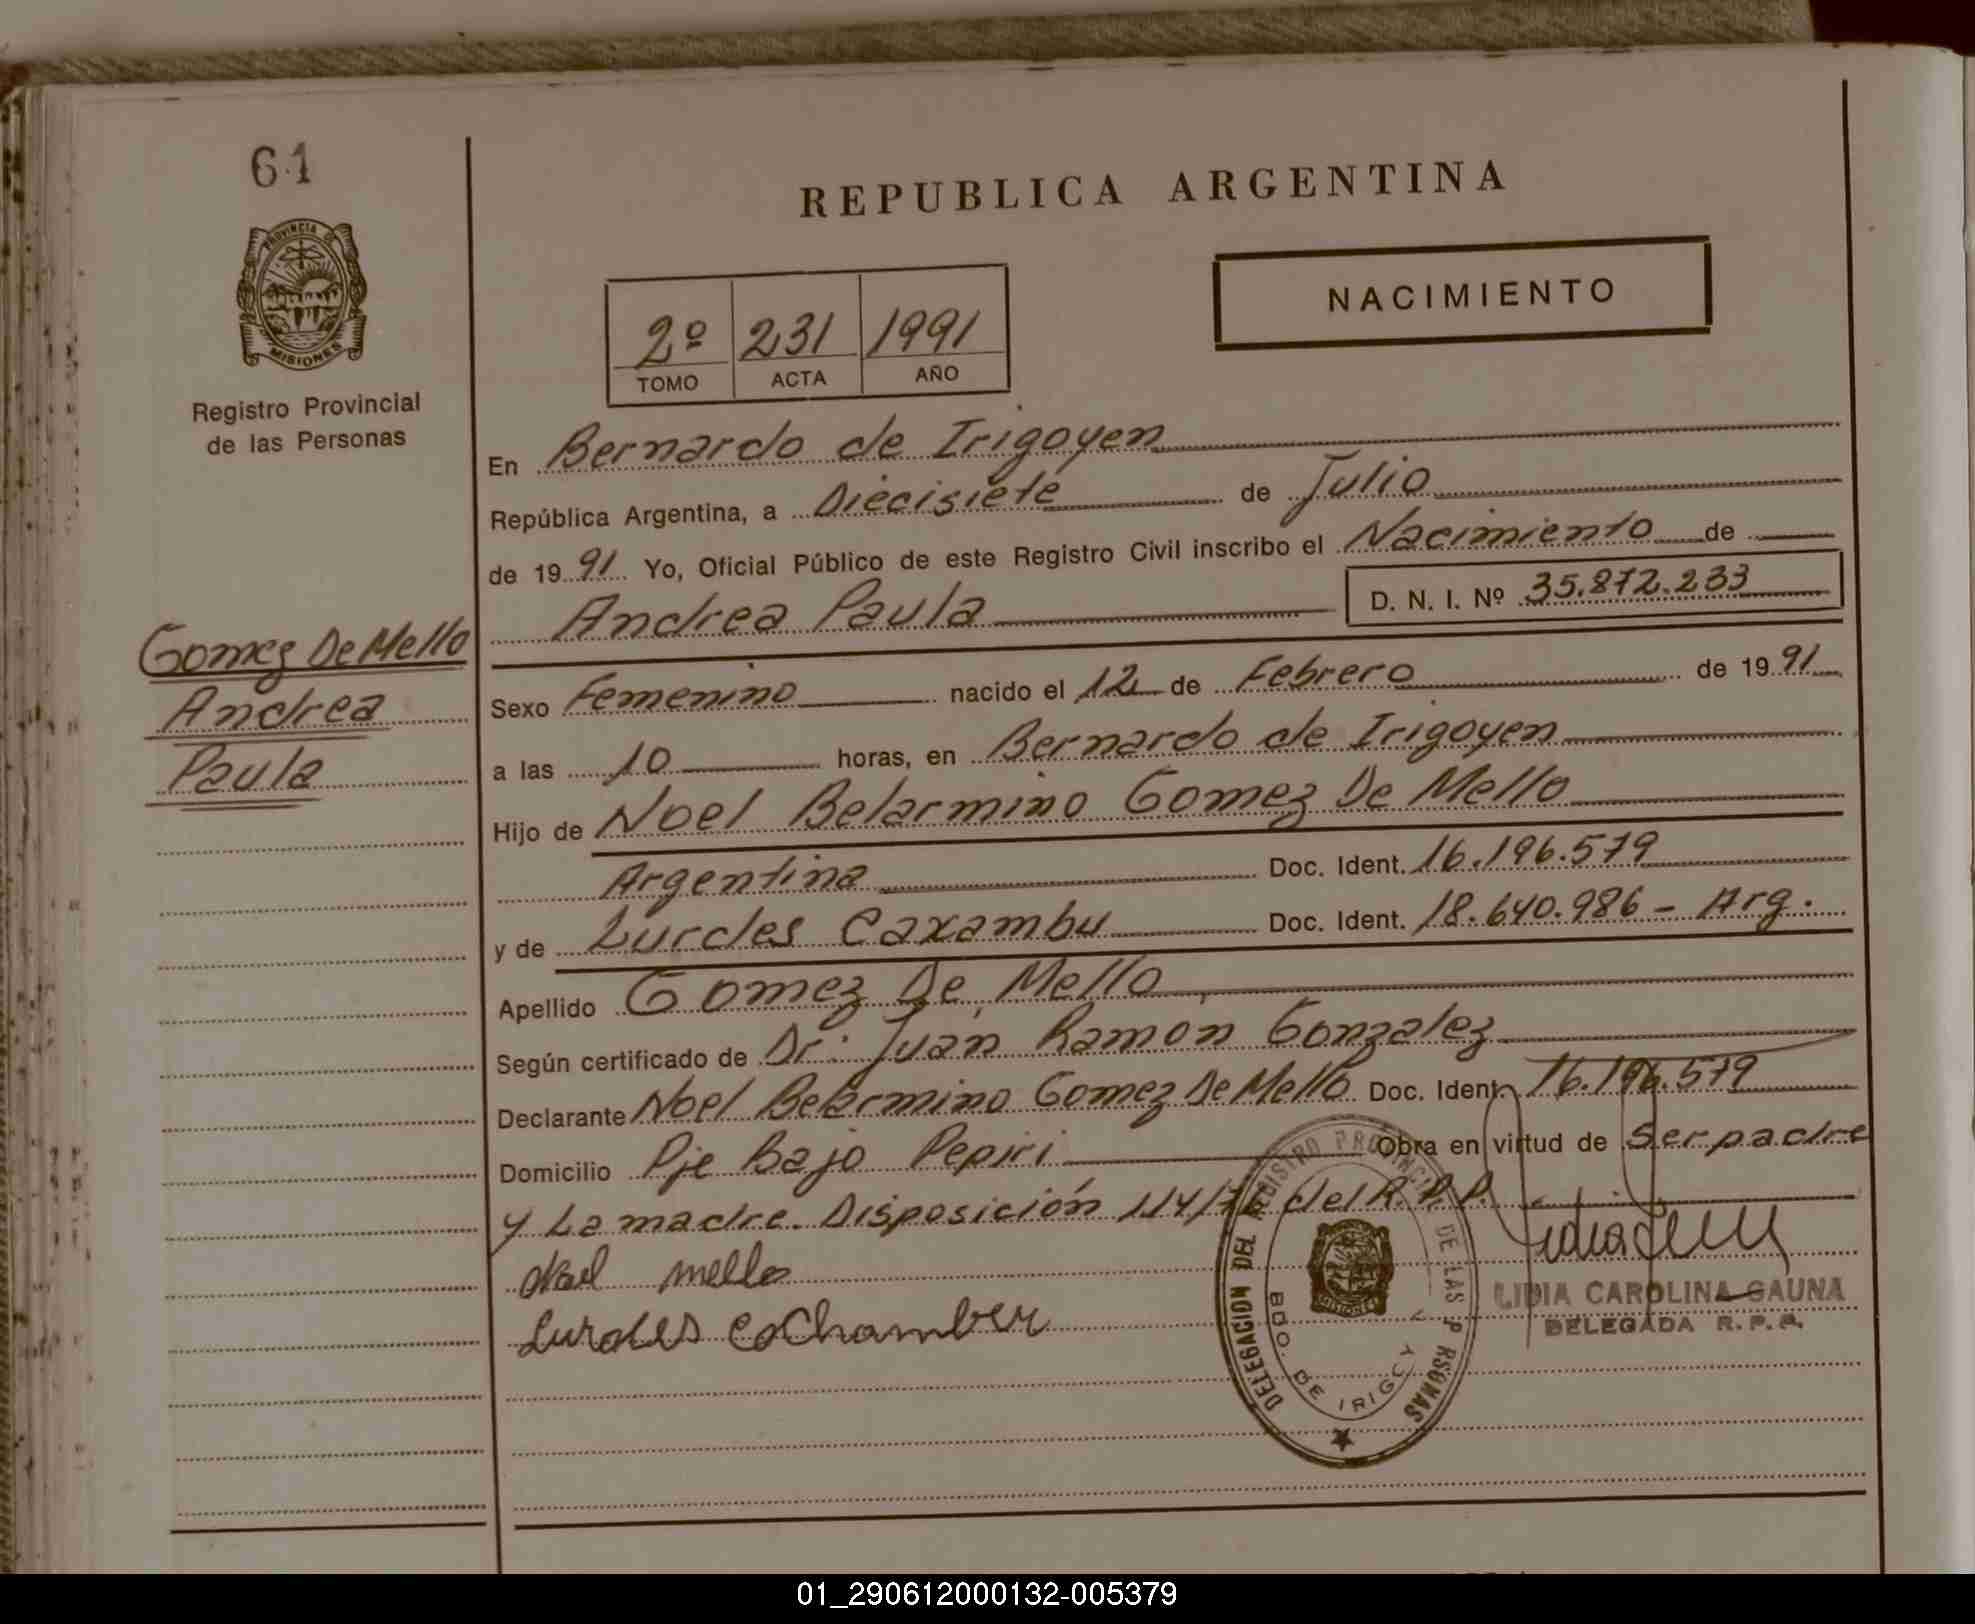 61
REPUBLICA ARGENTINA
PROVINCIA DE
MISIONES
NACIMIENTO
2º 231 1991
TOMO ACTA AÑO
Registro Provincial
de las Personas
En Bernardo de Irigoyen
República Argentina, a Diecisiete de Julio
de 19 91 Yo, Oficial Público de este Registro Civil inscribo el Nacimiento de
Andrea Paula D. N. I. Nº 35.872.233
Gomez De Mello
Andrea
Paula
Sexo Femenino nacido el 12 de Febrero de 19 91
a las 10 horas, en Bernardo de Irigoyen
Hijo de Noel Belarmino Gomez De Mello
Argentina Doc. Ident. 16.196.579
y de Lurdes Caxambu Doc. Ident. 18.640.986 - Arg.
Apellido Gomez De Mello
Según certificado de Dr. Juan Ramón Gonzalez
Declarante Noel Belarmino Gomez De Mello Doc. Ident. 16.196.579
Domicilio Pje Bajo Pepiri Obra en virtud de Ser padre
y La madre. Disposición 114/ del R.P.P.
Noel mello
Lurdes CaChamber
DELEGACION DEL REGISTRO PROVINCIAL DE LAS P RSONAS
BDO. DE IRIGOY N
LIDIA CAROLINA GAUNA
DELEGADA R.P.P.
01_290612000132-005379